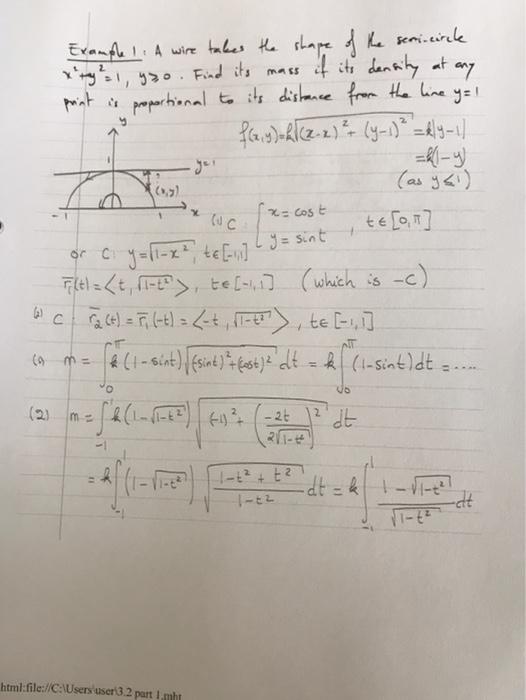 Example 1: A wire takes the shape of the semi-circle
x²+y²=1, y≥0. Find its mass if its density at any
point is proportional to its distance from the line y=1
y
f(x,y)=k√((x-x)²+(y-1)²)=k|y-1|
=k(1-y)
(as y≤1)
y=1
(x,y)
-1 1 x
(1) C { x = cos t
y = sin t , t∈[0,π]
or C: y=√(1-x²), t∈[-1,1]
r₁(t)=<t, √(1-t²)>, t∈[-1,1] (which is -C)
(2) C r₂(t)=r₁(-t)=<-t, √(1-t²)>, t∈[-1,1]
(1) m = ∫₀^π k(1-sint)√((-sint)²+(cost)²) dt = k∫₀^π (1-sint)dt = ....
(2) m = ∫₋₁^1 k(1-√(1-t²)) √((-1)²+(-2t/(2√(1-t²)))²) dt
= k∫₋₁^1 (1-√(1-t²)) √((1-t²+t²)/(1-t²)) dt = k∫₋₁^1 (1-√(1-t²))/√(1-t²) dt
html:file://C:\Users\user\3.2 part 1.mht